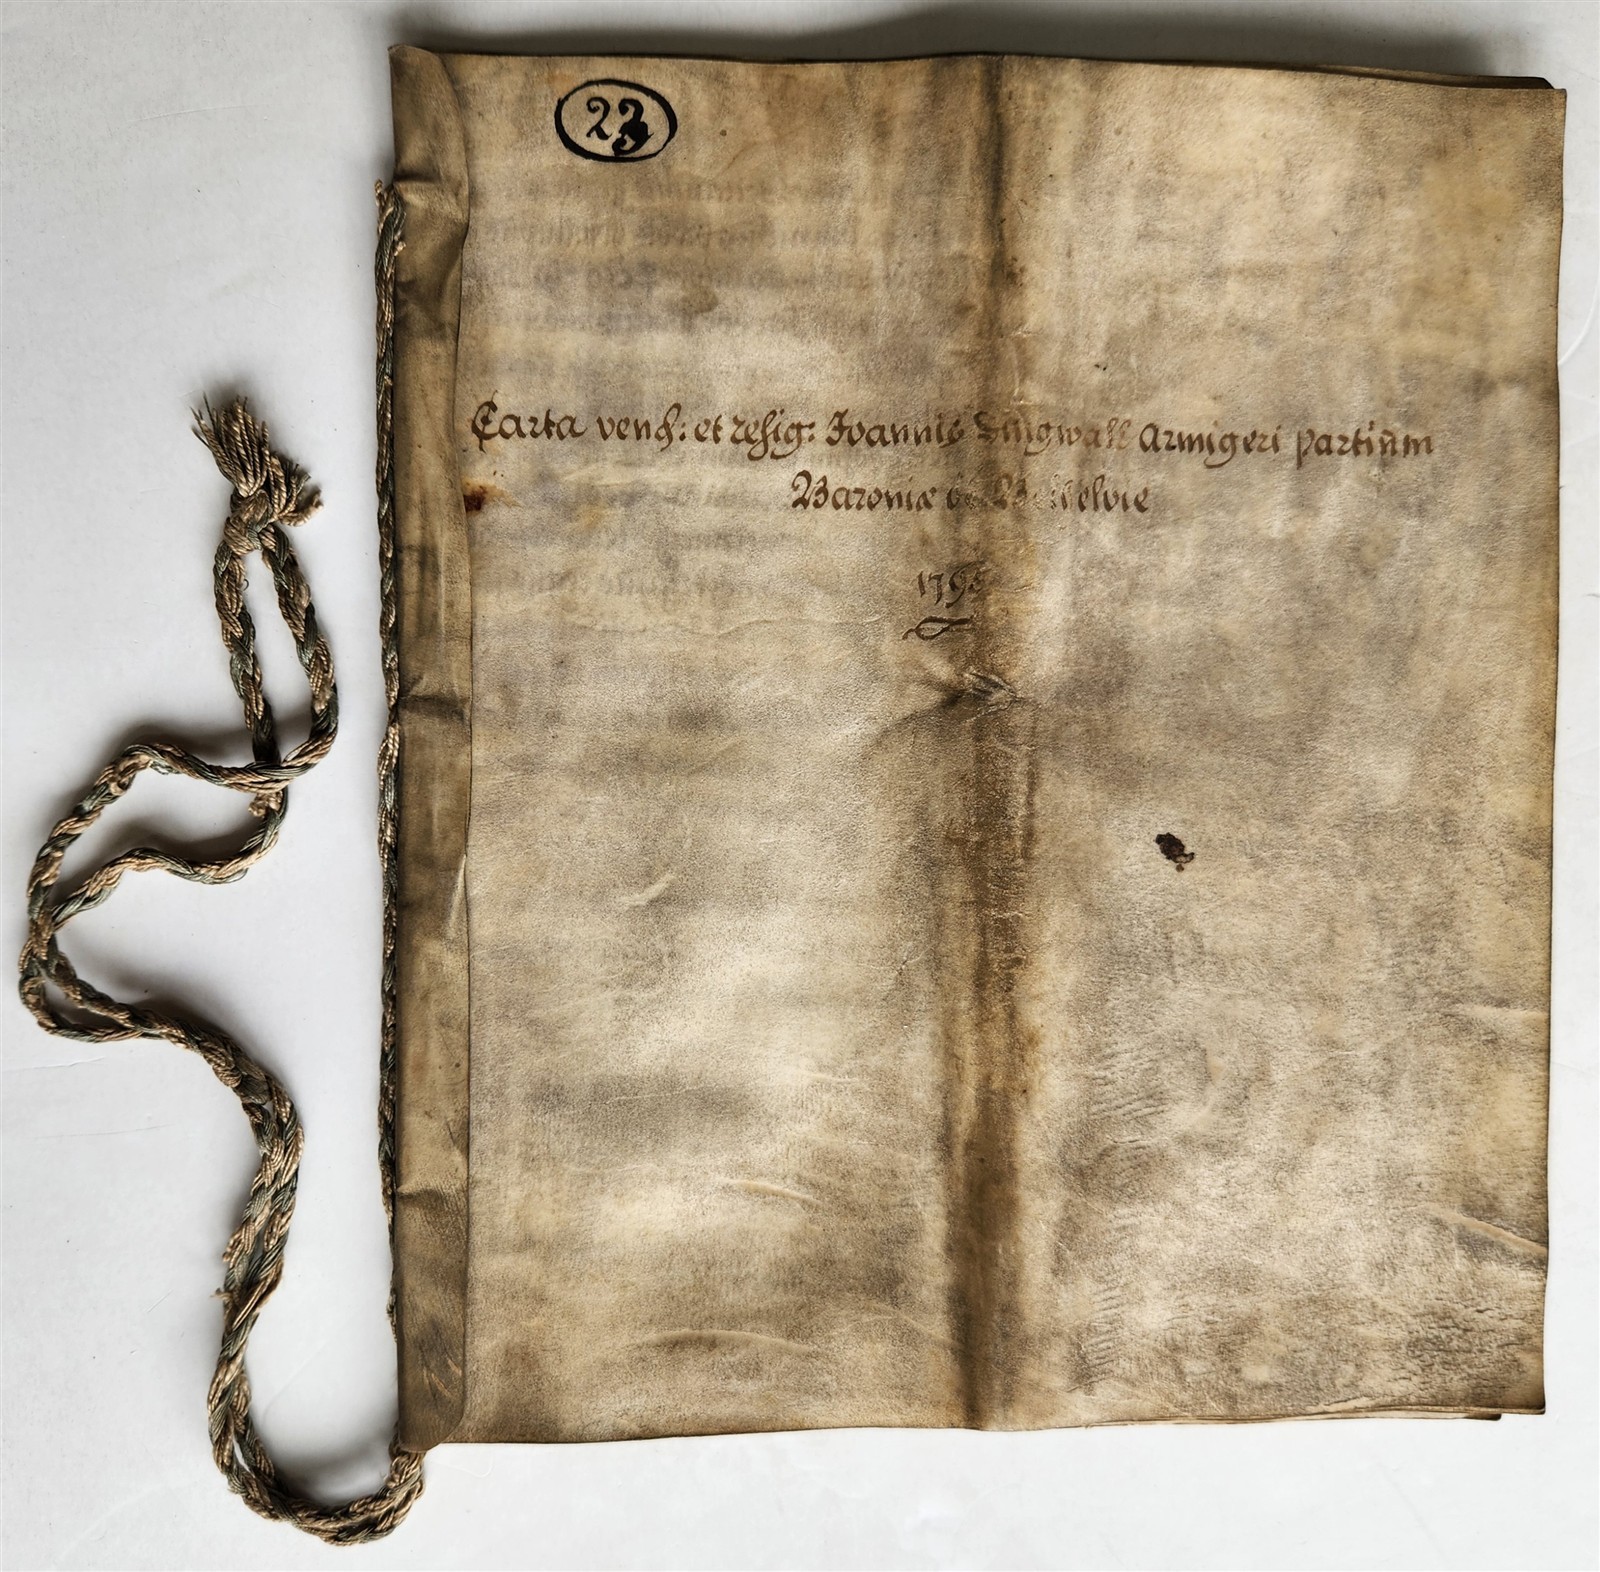 23
Carta vend: et resig: Joannis Dingwall Armigeri partium
Baroniæ de Belhelvie
179